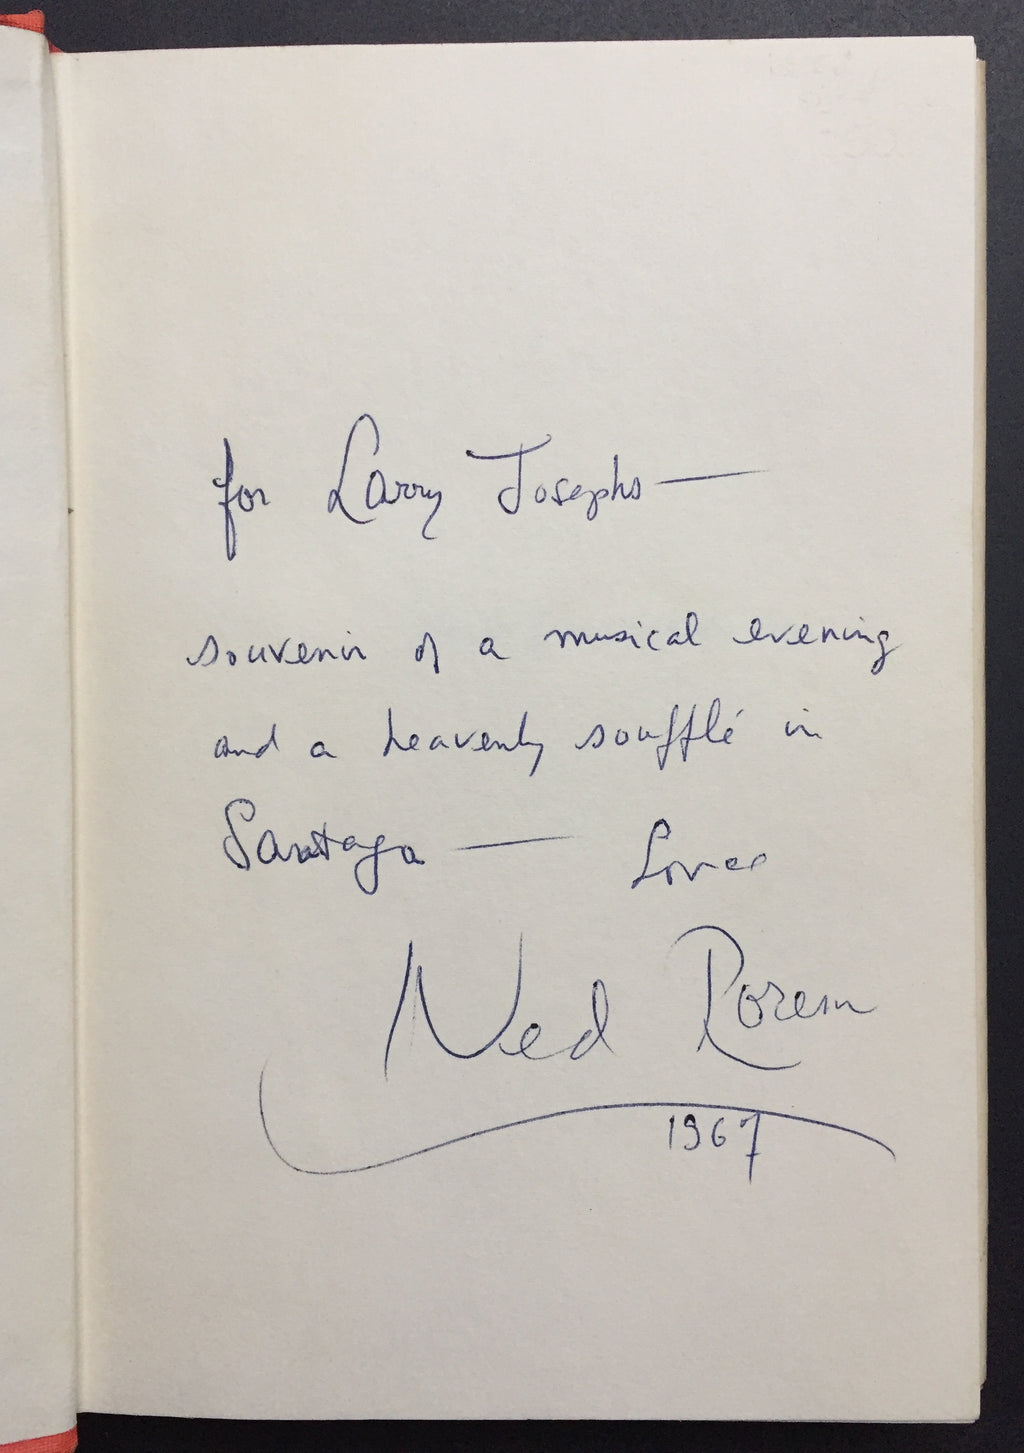 for Larry Josephs —
souvenir of a musical evening
and a heavenly soufflé in
Saratoga — Love
Ned Rorem
1967